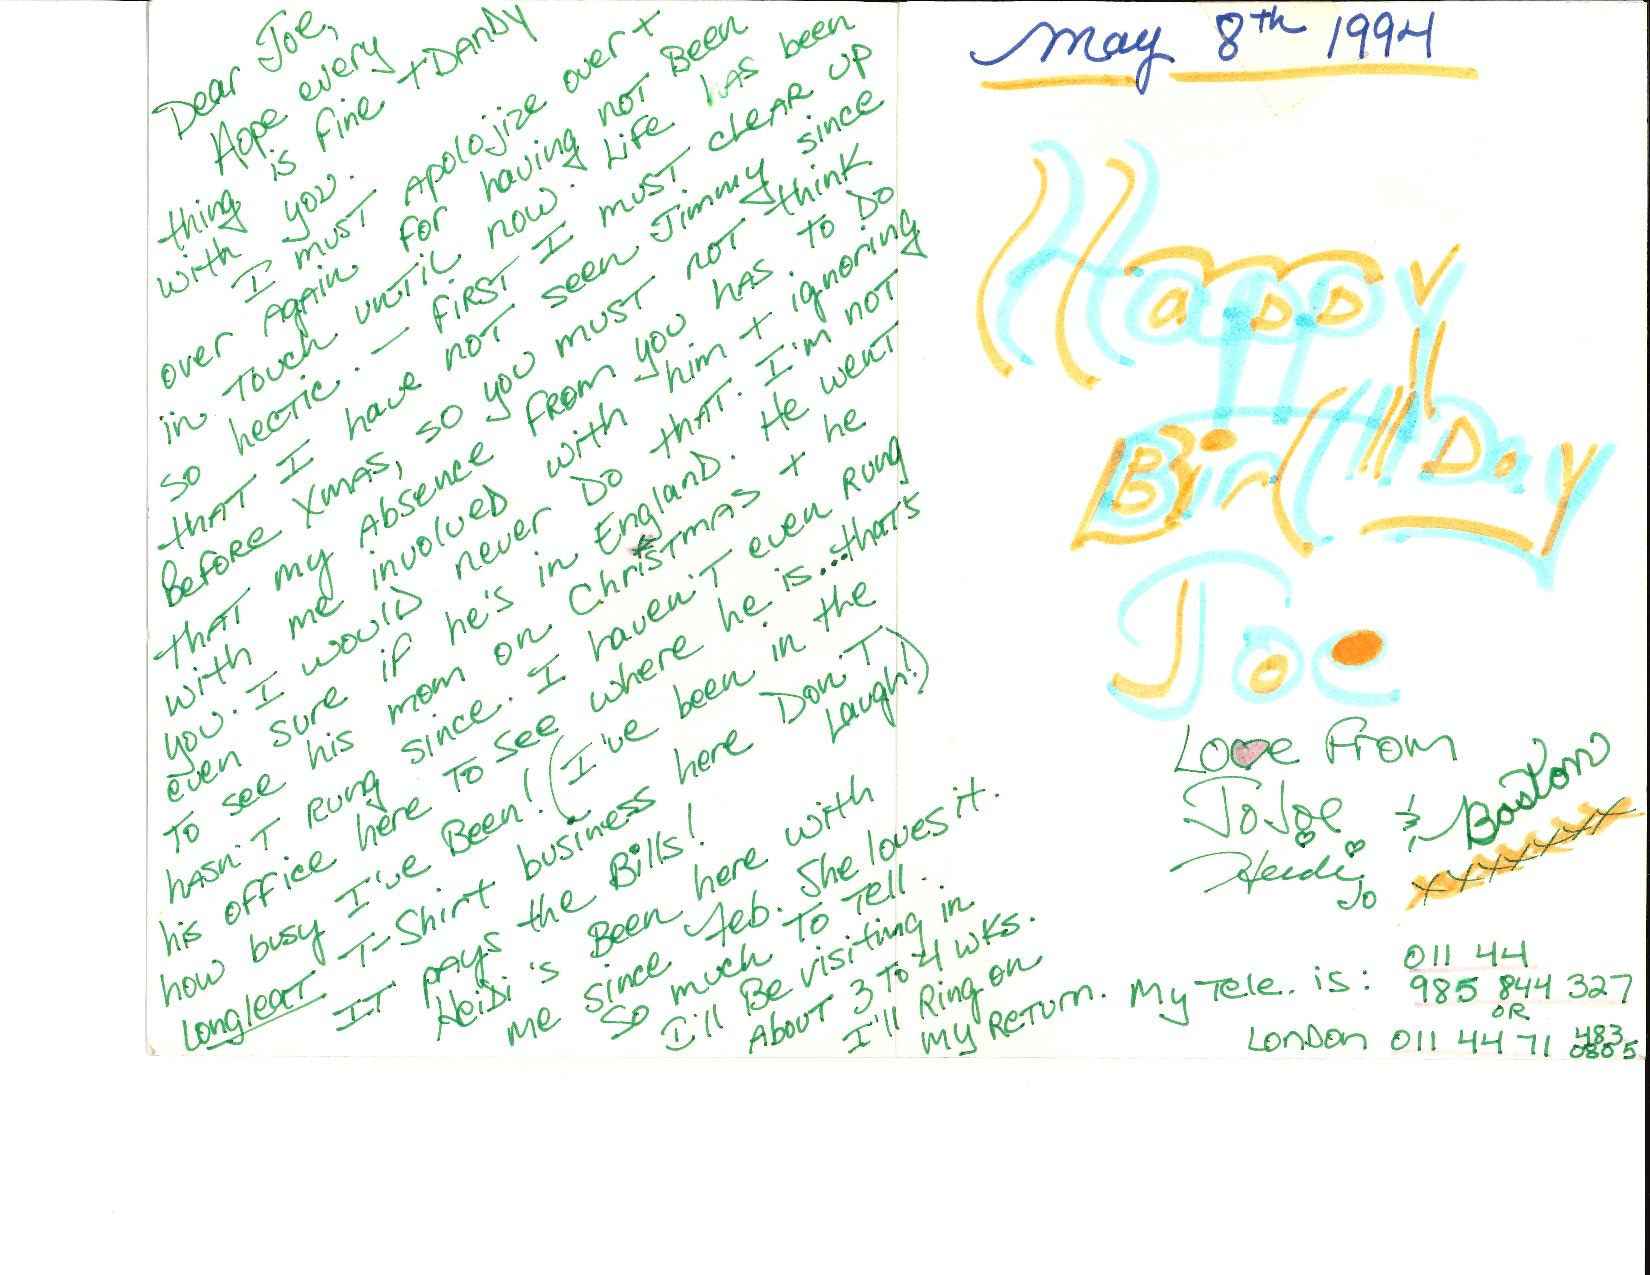 Dear Joe,
Hope every
thing is fine + DANDY
with you.
I must Apologize over +
over again for having not Been
in touch until now. Life has been
so hectic. — first I must clear up
that I have not seen Jimmy since
Before Xmas, so you must not think
that my Absence from you has to Do
with me involved with him + ignoring
you. I would never Do that. I'm not
even sure if he's in England. He went
to see his mom on Christmas + he
hasn't Rung since. I haven't even Rung
his office here to see where he is...that's
how busy I've Been! (I've been in the
Longleat T-Shirt business here Don't
Laugh!)
It pays the Bills!
Heidi's Been here with
me since Feb. She loves it.
So much to tell.
I'll Be visiting in
About 3 to 4 wks.
I'll Ring on
my return.
May 8th 1994
Happy
BirthDay
Joe
Love From
JoJoe & Boston
Heidi Jo
xxxxxxx
My Tele. is: 011 44
985 844 327
OR
LONDON 011 44 71 483
0805